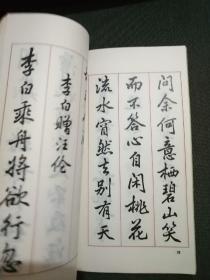 问余何意栖碧山笑
而不答心自闲桃花
流水窅然去别有天
李白赠汪伦
李白乘舟将欲行忽